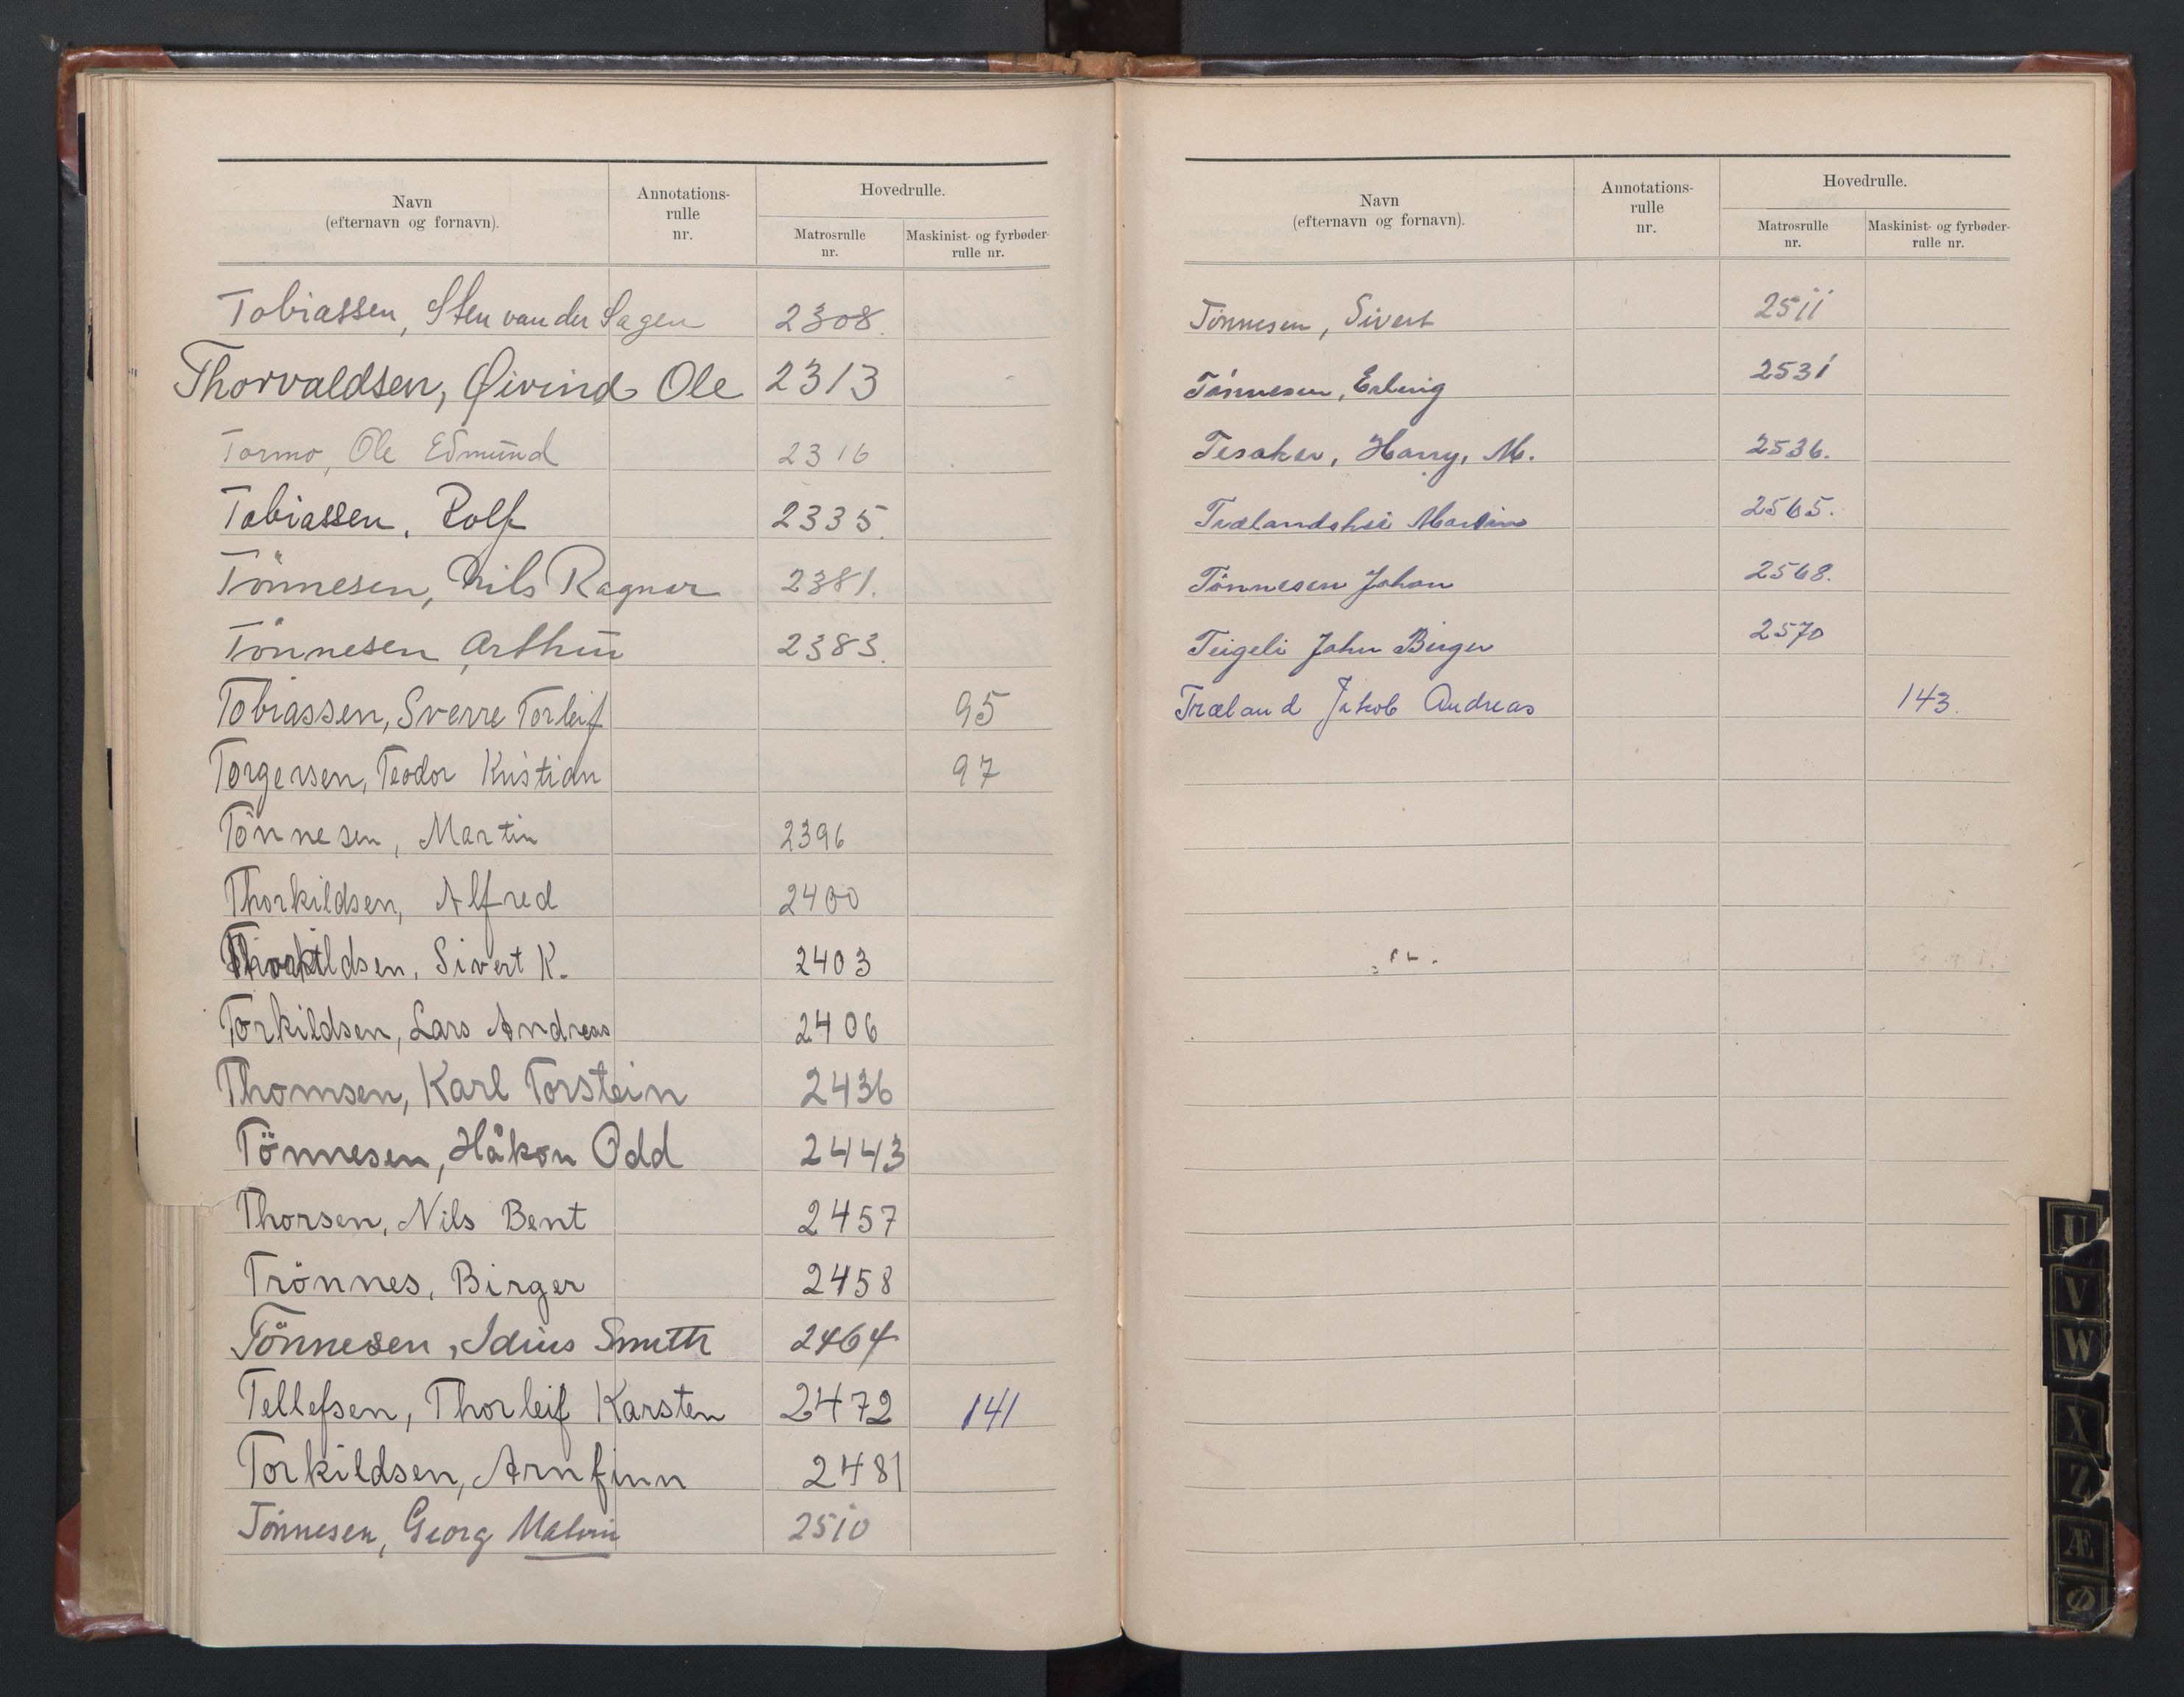 Navn
(efternavn og fornavn).
Annotations-
rulle
nr.
Hovedrulle.
Matrosrulle
nr.
Maskinist- og fyrbøder-
rulle nr.
Tobiassen, Sten van der Hagen 2308.
Thorvaldsen, Øivind Ole 2313
Tormo, Ole Edmund 2316
Tobiassen, Rolf 2335.
Tönnesen, Nils Ragnar 2381.
Tönnesen Arthur 2383.
Tobiassen, Sverre Torleif 95
Torgersen, Teodor Kristian 97
Tönnesen, Martin 2396
Thorkildsen, Alfred 2400
Thorkildsen, Sivert K. 2403
Torkildsen, Lars Andreas 2406
Thomsen, Karl Torstein 2436
Tönnesen, Håkon Odd 2443
Thorsen, Nils Bent 2457
Trönnes, Birger 2458
Tönnesen, Idius Smith 2464
Tellefsen, Thorleif Karsten 2472 141
Torkildsen, Arnfinn 2481
Tönnesen, Georg Malvin 2510
Navn
(efternavn og fornavn).
Annotations-
rulle
nr.
Hovedrulle.
Matrosrulle
nr.
Maskinist- og fyrbøder-
rulle nr.
Tönnesen, Sivert 2511
Tönnesen, Erling 2531
Tesaker, Harry, M. 2536.
Trælandshei Martin 2565.
Tönnesen Johan 2568.
Teigeli John Birger 2570
Træland Jakob Andreas 143.
U
V
W
X
Z
Æ
Ø